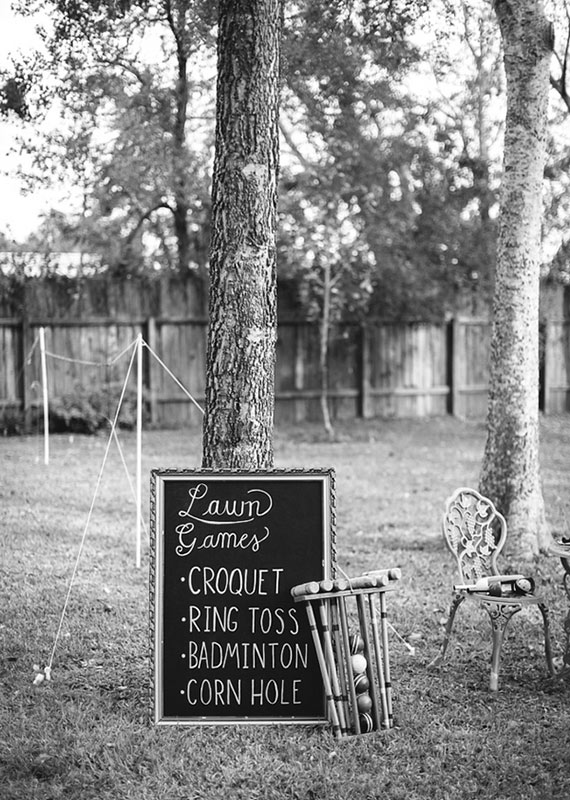 Lawn
Games
• CROQUET
• RING TOSS
• BADMINTON
• CORN HOLE